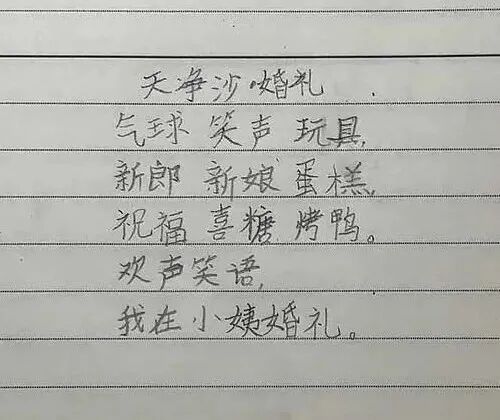 天净沙·婚礼
气球 笑声 玩具,
新郎 新娘 蛋糕,
祝福 喜糖 烤鸭。
欢声笑语,
我在小姨婚礼。